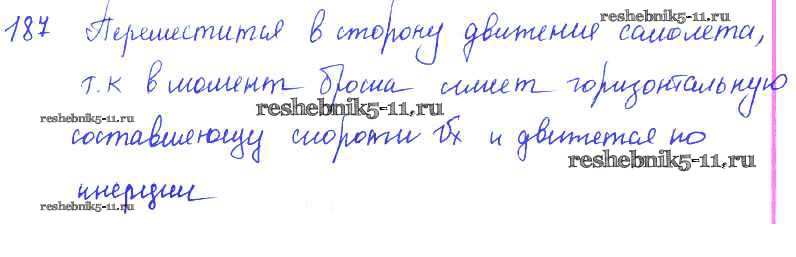 reshebnik5-11.ru
187 Переместится в сторону движения самолета,
т.к в момент броска имеет горизонтальную
reshebnik5-11.ru
reshebnik5-11.ru
составляющую скорости Vx и движется по
reshebnik5-11.ru
инерции
reshebnik5-11.ru